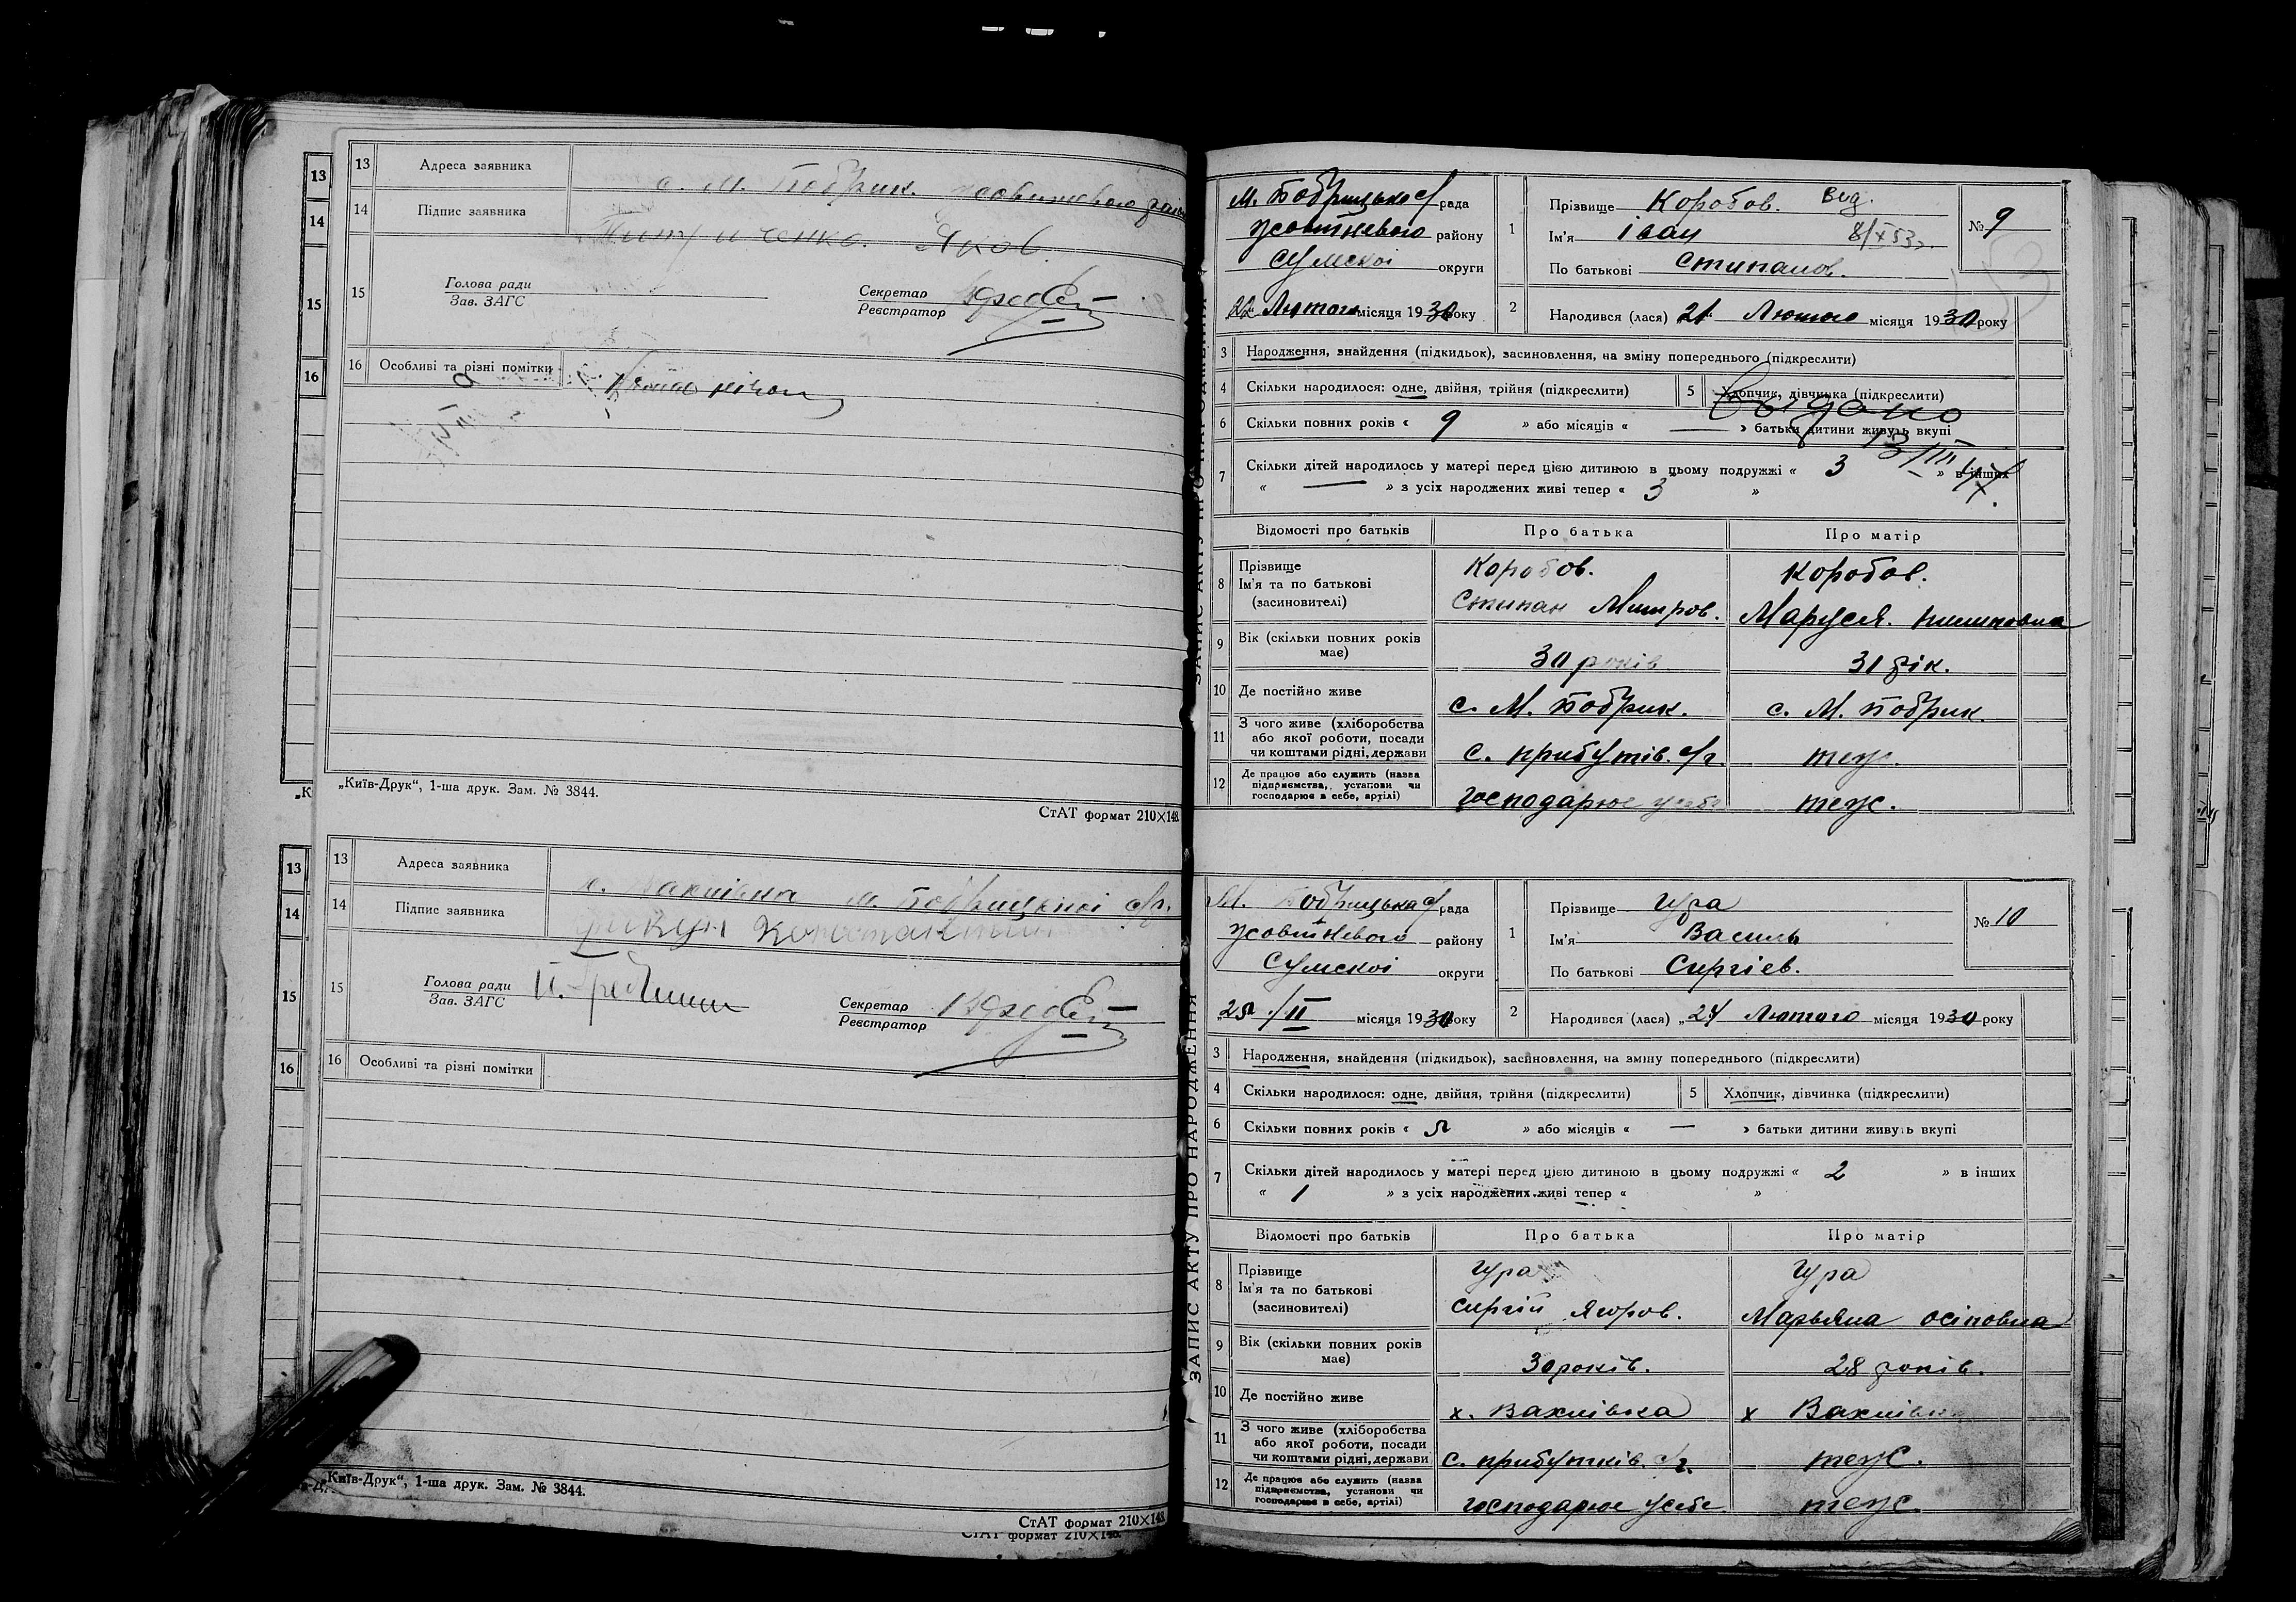 13 Адреса заявника с. М. Бобрик.
14 Підпис заявника Яков.
15 Голова ради
Зав. ЗАГС
Секретар
Реєстратор
16 Особливі та різні помітки
„Київ-Друк“, 1-ша друк. Зам. № 3844.
СтАТ формат 210×148.
13 Адреса заявника М. Бобрицької с/р.
14 Підпис заявника
15 Голова ради
Зав. ЗАГС
Секретар
Реєстратор
16 Особливі та різні помітки
„Київ-Друк“, 1-ша друк. Зам. № 3844.
СтАТ формат 210×148.
СтАТ формат 210×148.
ЗАПИС АКТУ ПРО НАРОДЖЕННЯ
М. Бобрицька с/рада
Жовтневого району
Сумскої округи
22 Лютого місяця 1930 року
1 Прізвище Коробов. Вид.
Ім'я Іван 8/X 53 г.
По батькові Стипанов.
№ 9
2 Народився (лася) 21 Лютого місяця 1930 року
3 Народження, знайдення (підкидьок), засиновлення, на зміну попереднього (підкреслити)
4 Скільки народилося: одне, двійня, трійня (підкреслити)
5 Хлопчик, дівчинка (підкреслити)
Выдано
6 Скільки повних років « 9 » або місяців « — » батьки дитини живуть вкупі
13/III 47.
7 Скільки дітей народилось у матері перед цією дитиною в цьому подружжі « 3 » в інших
« — » з усіх народжених живі тепер « 3 »
Відомості про батьків Про батька Про матір
8 Прізвище Коробов. Коробов.
Ім'я та по батькові
(засиновителі) Стипан Митров. Маруся.
9 Вік (скільки повних років має) 30 років 31 рік.
10 Де постійно живе с. М. Бобрик. с. М. Бобрик.
11 З чого живе (хліборобства
або якої роботи, посади
чи коштами рідні, держави с. прибутків. с/г. теж.
12 Де працює або служить (назва
підприємства, установи чи
господарює в себе, артілі) господарює у себе теж.
ЗАПИС АКТУ ПРО НАРОДЖЕННЯ
М. Бобрицька с/рада
Жовтневого району
Сумскої округи
25/II місяця 1930 року
1 Прізвище Гура
Ім'я Василь
По батькові Сиргіев.
№ 10
2 Народився (лася) „24 Лютого місяця 1930 року
3 Народження, знайдення (підкидьок), засиновлення, на зміну попереднього (підкреслити)
4 Скільки народилося: одне, двійня, трійня (підкреслити)
5 Хлопчик, дівчинка (підкреслити)
6 Скільки повних років « 5 » або місяців « — » батьки дитини живуть вкупі
7 Скільки дітей народилось у матері перед цією дитиною в цьому подружжі « 2 » в інших
« 1 » з усіх народжених живі тепер « »
Відомості про батьків Про батька Про матір
8 Прізвище Гура Гура
Ім'я та по батькові
(засиновителі) Сиргій Ягоров. Марьяна Осіповна
9 Вік (скільки повних років має) 30 років. 28 років.
10 Де постійно живе х. Ваклівка х Ваклівка
11 З чого живе (хліборобства
або якої роботи, посади
чи коштами рідні, держави с. прибутків. с/г. теж.
12 Де працює або служить (назва
підприємства, установи чи
господарює в себе, артілі) господарює у себе теж.